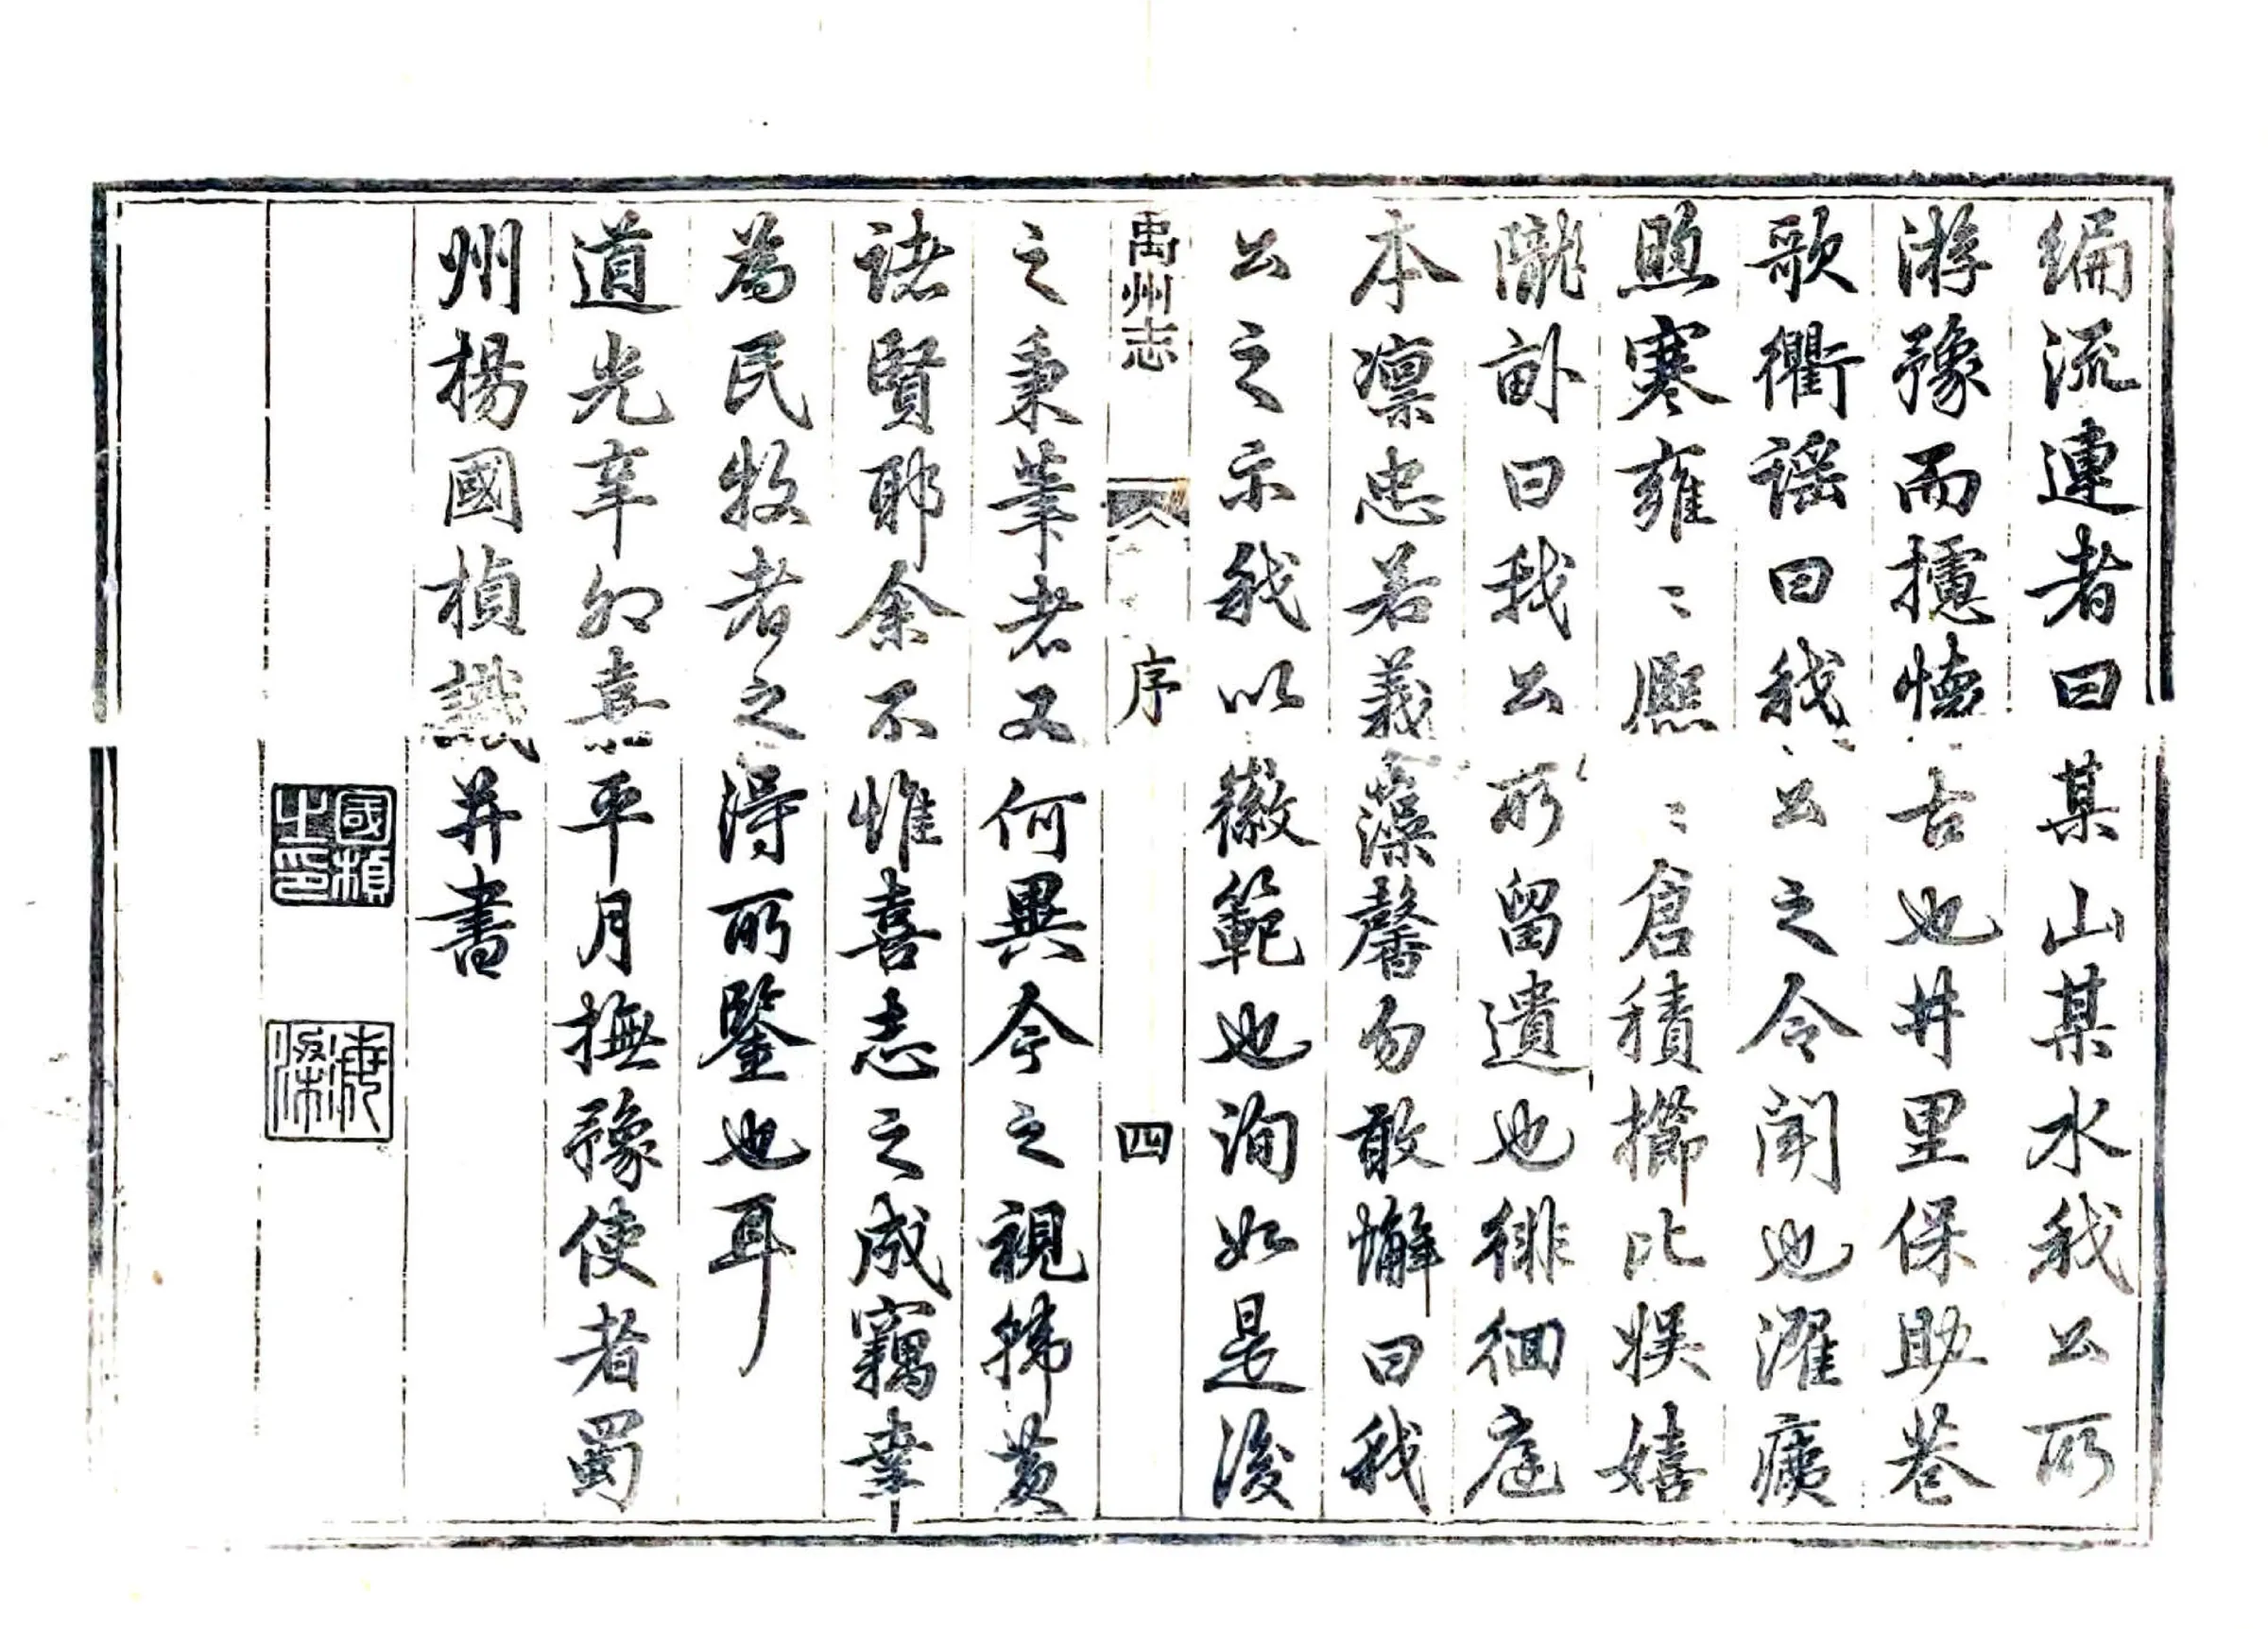 編流連者曰某山某水我公所
游豫而攄懷古也井里保助巷
歌衢謡曰我公之令聞也濯痍
煦寒雍〻熙〻倉積櫛比娛嬉
隴畝曰我公所留遺也徘徊庭
本凛忠若義藻馨勿敢懈曰我
公之示我以徽範也洵如是後
禹州志 序 四
之秉筆者又何異今之視韓黄
諸賢耶余不惟喜志之成竊幸
為民牧者之得所鑒也耳
道光辛卯嘉平月撫豫使者蜀
州楊國楨識并書
國楨之印
海梁